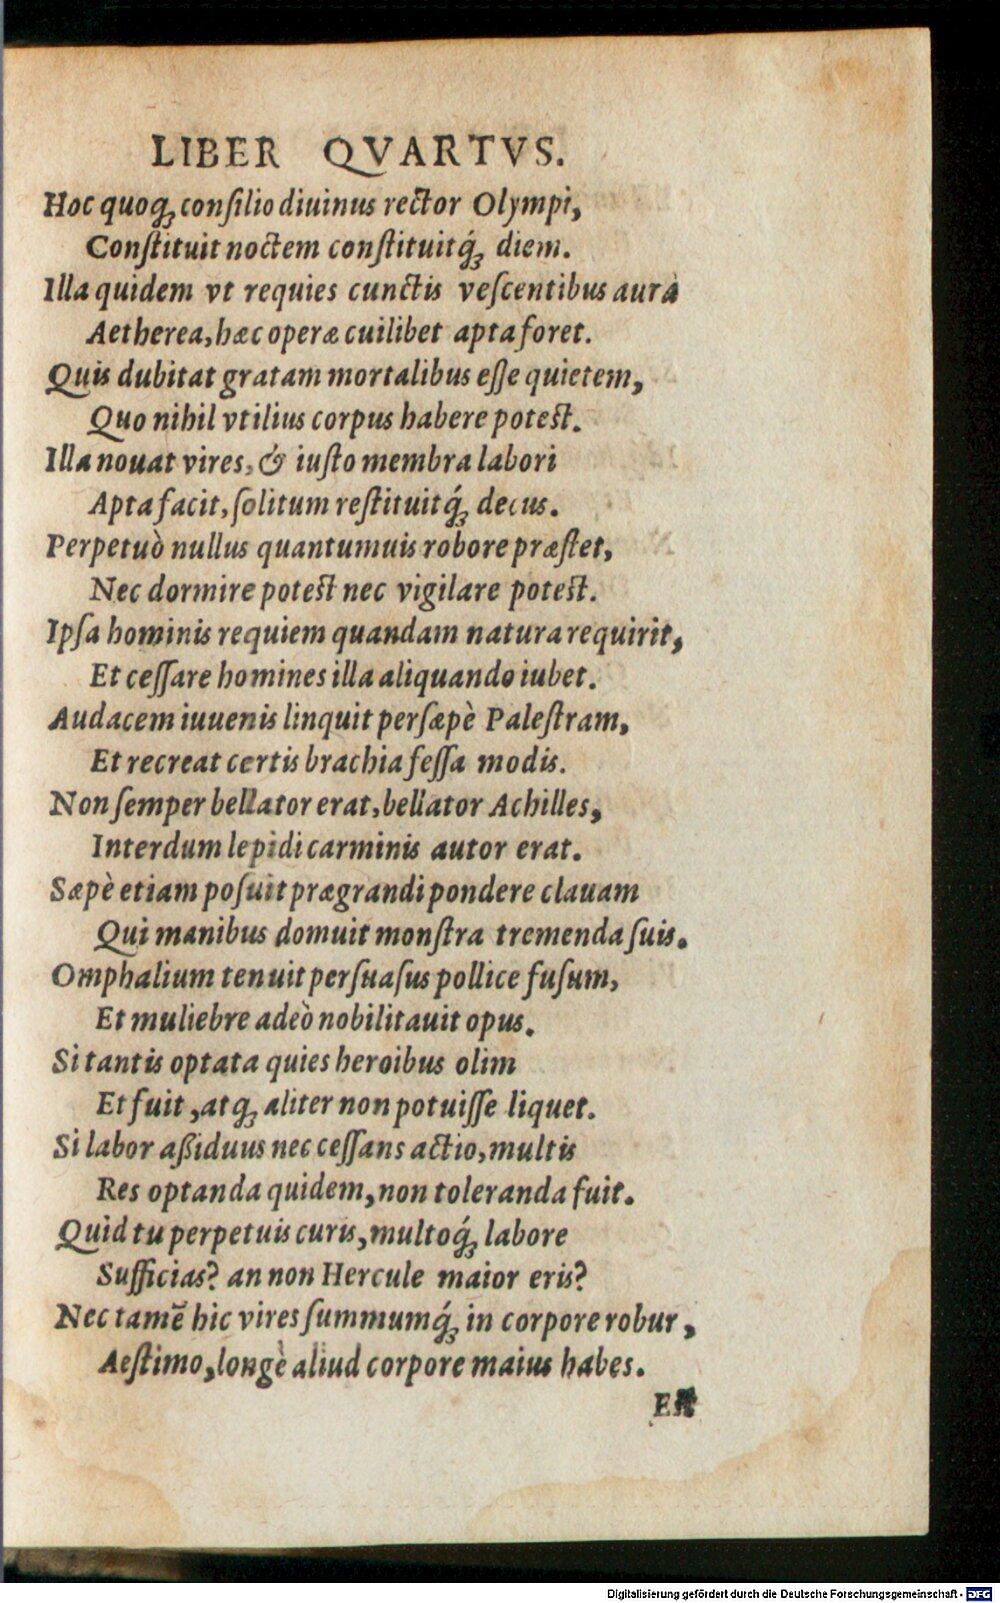 LIBER QVARTVS.
Hoc quoqꝫ conſilio diuinus rector Olympi,
Conſtituit noctem conſtituitq́ꝫ diem.
Illa quidem vt requies cunctis veſcentibus aurà
Aetherea, hæc operæ cuilibet apta foret.
Quis dubitat gratam mortalibus eſſe quietem,
Quo nihil vtilius corpus habere poteſt.
Illa nouat vires, & iuſto membra labori
Apta facit, ſolitum reſtituitq́ꝫ decus.
Perpetuò nullus quantumuis robore præſtet,
Nec dormire poteſt nec vigilare poteſt.
Ipſa hominis requiem quandam natura requirit,
Et ceſſare homines illa aliquando iubet.
Audacem iuuenis linquit perſæpè Paleſtram,
Et recreat certis brachia feſſa modis.
Non ſemper bellator erat, bellator Achilles,
Interdum lepidi carminis autor erat.
Sæpè etiam poſuit prægrandi pondere clauam
Qui manibus domuit monſtra tremenda ſuis.
Omphalium tenuit perſuaſus pollice fuſum,
Et muliebre adeò nobilitauit opus.
Si tantis optata quies heroibus olim
Et fuit, atqꝫ aliter non potuiſſe liquet.
Si labor aßiduus nec ceſſans actio, multis
Res optanda quidem, non toleranda fuit.
Quid tu perpetuis curis, multoq́ꝫ labore
Sufficias? an non Hercule maior eris?
Nec tamē hic vires ſummumq́ꝫ in corpore robur,
Aeſtimo, longè aliud corpore maius habes.
Et
Digitalisierung gefördert durch die Deutsche Forschungsgemeinschaft - DFG